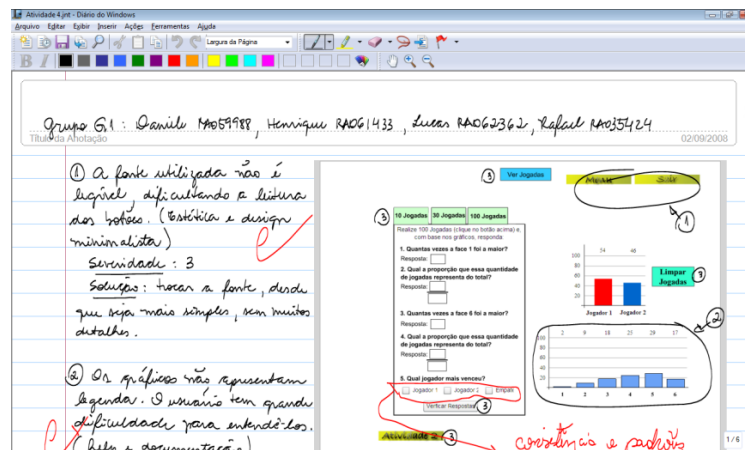 Atividade 4.jnt - Diário do Windows
Arquivo Editar Exibir Inserir Ações Ferramentas Ajuda
Largura da Página
B I
Grupo G.1 : Daniele RA059988, Henrique RA061433, Lucas RA062362, Rafael RA035424
Título da Anotação
02/09/2008
① A fonte utilizada não é
legível, dificultando a leitura
dos botões. (Estética e design
minimalista)
Severidade : 3
Solução : trocar a fonte, desde
que seja mais simples, sem muitos
detalhes.
② Os gráficos não apresentam
legenda. O usuário tem grande
dificuldade para entendê-los.
(help e documentação)
③ Ver Jogadas
Menu Sair
①
③ 10 Jogadas 30 Jogadas 100 Jogadas
Realize 100 Jogadas (clique no botão acima) e,
com base nos gráficos, responda:
1. Quantas vezes a face 1 foi a maior?
Resposta:
2. Qual a proporção que essa quantidade
de jogadas representa do total?
Resposta:
3. Quantas vezes a face 6 foi a maior?
Resposta:
4. Qual a proporção que essa quantidade
de jogadas representa do total?
Resposta:
5. Qual jogador mais venceu?
Jogador 1 Jogador 2 Empate
Verificar Respostas ③
Atividade 2 ③
54 46
100
80
60
40
20
Jogador 1 Jogador 2
Limpar
Jogadas ③
②
2 9 18 25 29 17
100
80
60
40
20
1 2 3 4 5 6
consistência e padrões
1/6